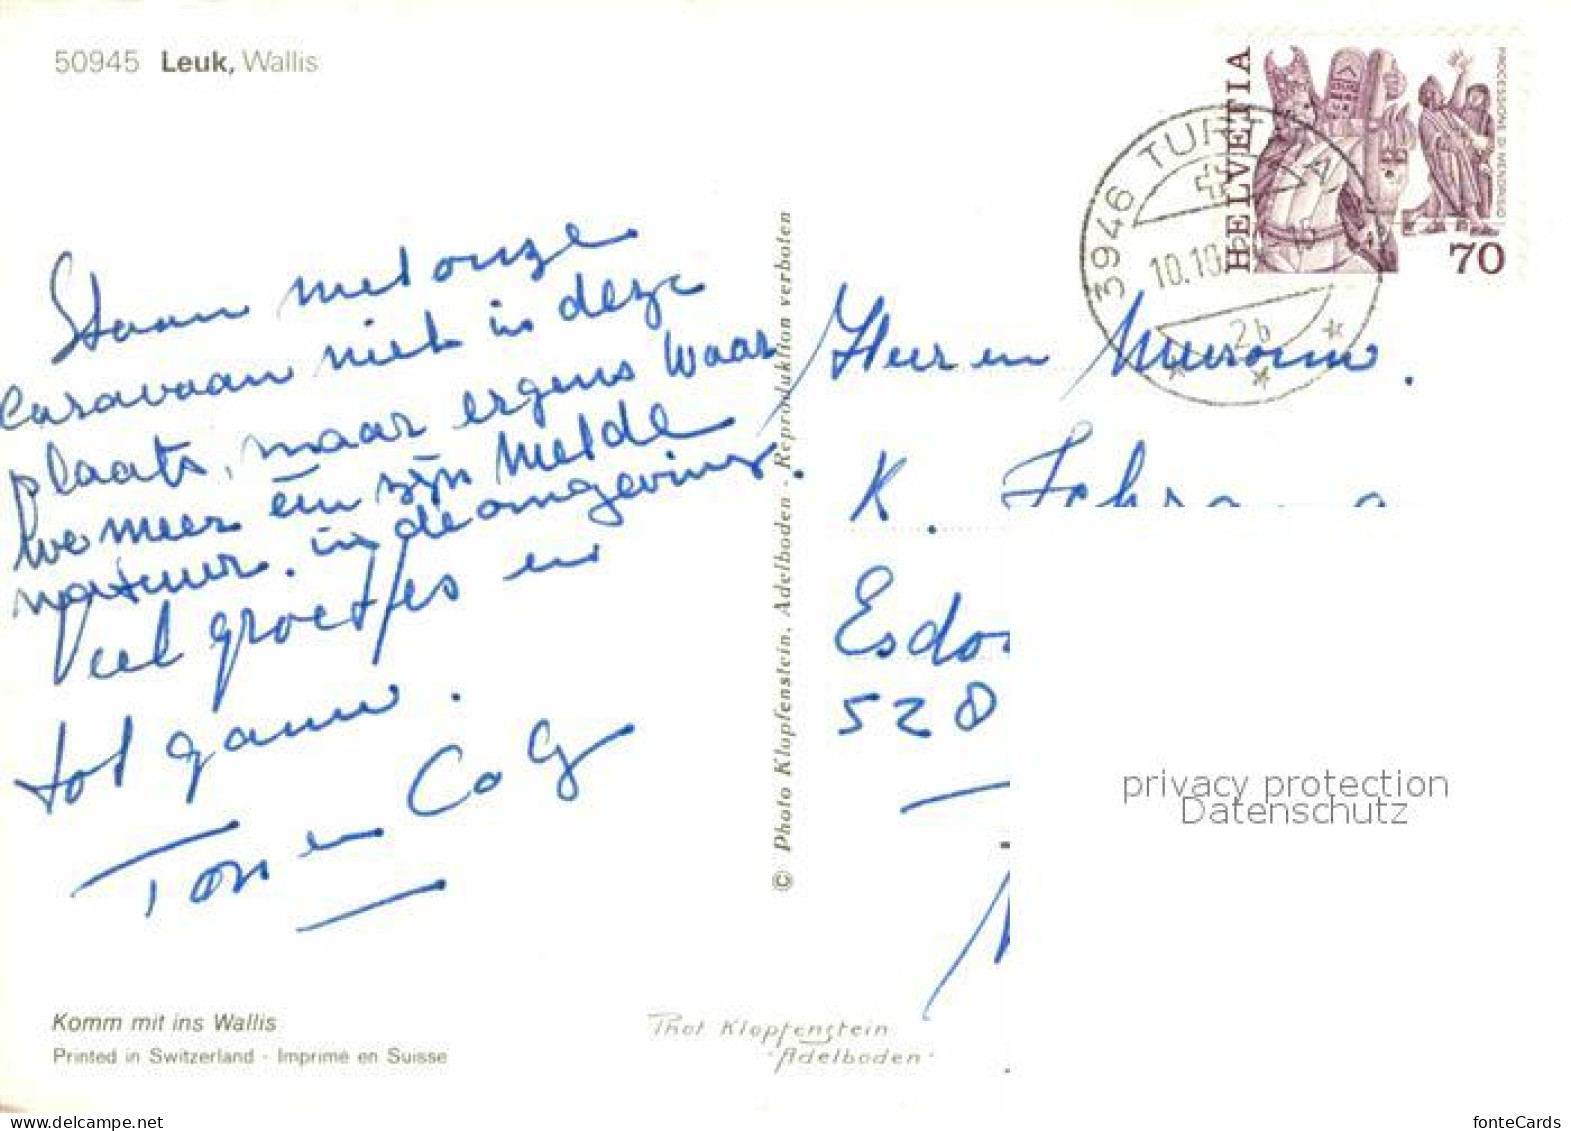 50945 Leuk, Wallis
HELVETIA
PROCESSIONE DI MENDRISIO
70
3946 TURT A
10.10
15
2b
Staan met onze
Caravaan niet in deze
plaats, maar ergens waar
we meer één zijn melde
natuur. in de omgeving.
Veel groetjes en
tot gauw.
Ton en Co G
© Photo Klopfenstein, Adelboden - Reproduktion verboten
Heer en Mevrouw.
K.
Esdo
528
privacy protection
Datenschutz
Komm mit ins Wallis
Printed in Switzerland - Imprimé en Suisse
Phot Klopfenstein
·Adelboden·
www.delcampe.net
fonteCards